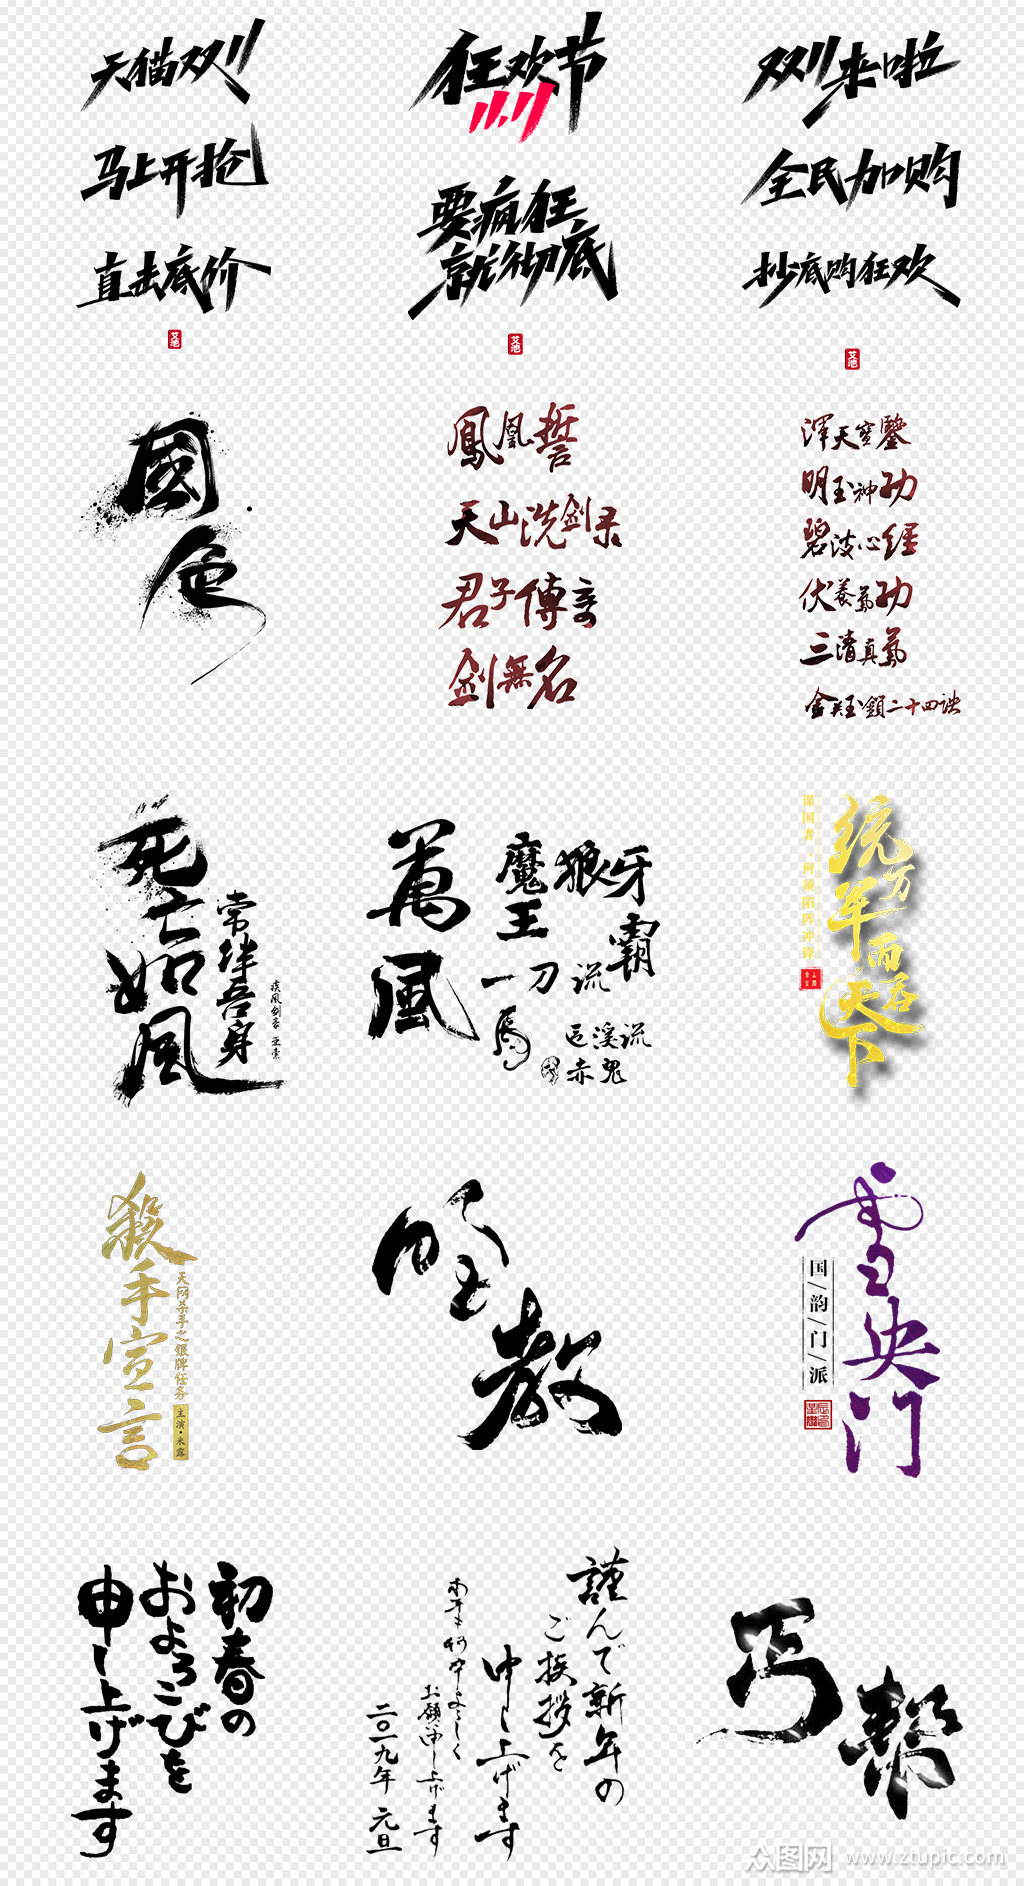 天猫双11
马上开抢
直击底价
艾池
狂欢节
11.11
要疯狂
就彻底
艾池
双11来啦
全民加购
抄底购狂欢
艾池
國色
鳳凰誓
天山洗剑录
君子傳奇
剑無名
渾天寶鑒
明玉神功
碧波心經
伏養氣功
三清真氣
金关玉鎖二十四诀
死亡如風
常伴吾身
疾風剑豪 亚索
萬風
魔王
狼牙
霸
一刀
流
馬
叵溪流
赤鬼
谋国者·何须陷阵冲锋
统万军而吞天下
殺手宣言
天网杀手之银牌任务
主演·米露
明教
雪央门
国/韵/门/派
初春の
およろこびを
申し上げます
謹んで新年の
ご挨拶を
申し上げます
本年も何卒よろしく
お願申し上げます
二〇一九年 元旦
丐幫
众图网 www.ztupic.com